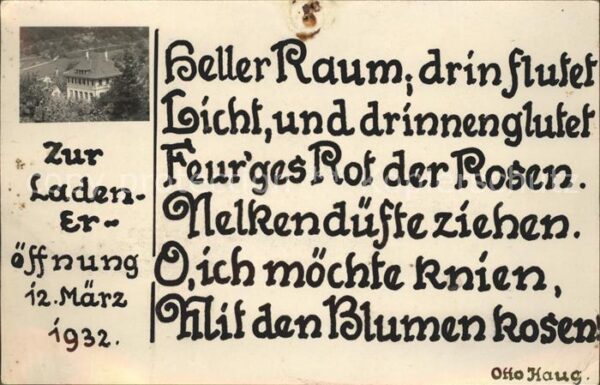 Zur
Laden-
Er-
öffnung
12. März
1932.
Heller Raum; drin flutet
Licht, und drinnen glutet
Feur'ges Rot der Rosen.
Nelkendüfte ziehen.
O, ich möchte knien,
Mit den Blumen kosen!
Otto Haug.